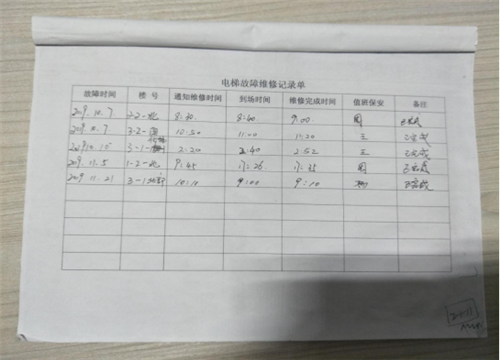 电梯故障维修记录单
故障时间 楼号 通知维修时间 到场时间 维修完成时间 值班保安 备注
2019.10.7 2-2- 8:30 8:40 9:00 周 已完成
10.7 3-2- 10:50 11:00 11:20 王 已完成
2019.10.15 3-1- 2:20 2:40 2:52 王 已完成
11.5 1-2- 9:45 周 已完成
2019.11.21 3-1- 10:10 9:00 9:10 已完成